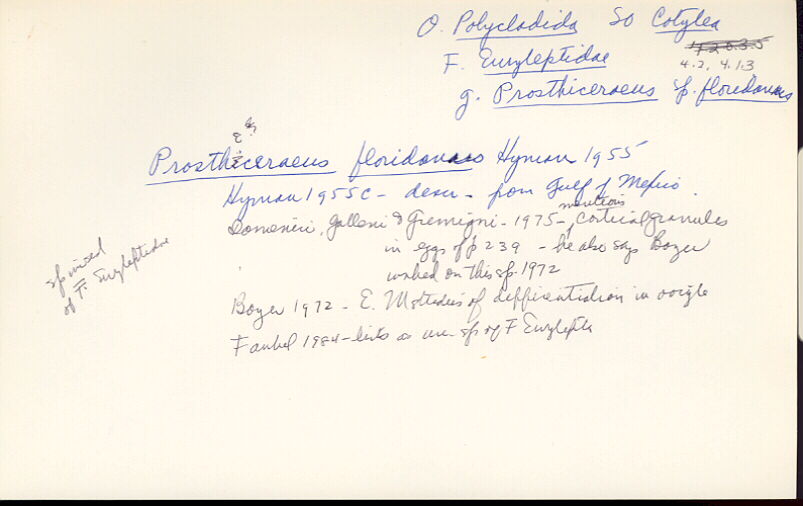 O. Polycladida SO Cotylea
42035
4.2, 4.1.3
F. Euryleptidae
g. Prosthiceraeus sp. floridanus
Prosthiceraeus floridanus Hyman 1955
Hyman 1955c - descr - from Gulf of Mexico.
mentions
Domenici, Galleni & Gremigni - 1975 - cortical granules
in eggs of p 239 - he also says Boyer
worked on this sp. 1972
Boyer 1972 - E. M. studies of differentiation in oocyte
Faubel 1984 - lists as unc. sp of F Eurylepta
of F. Euryleptidae